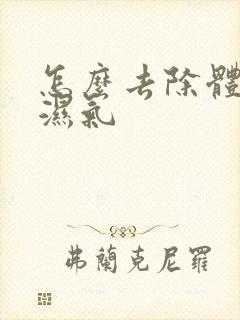 怎麼去除體
濕氣
弗蘭克尼羅